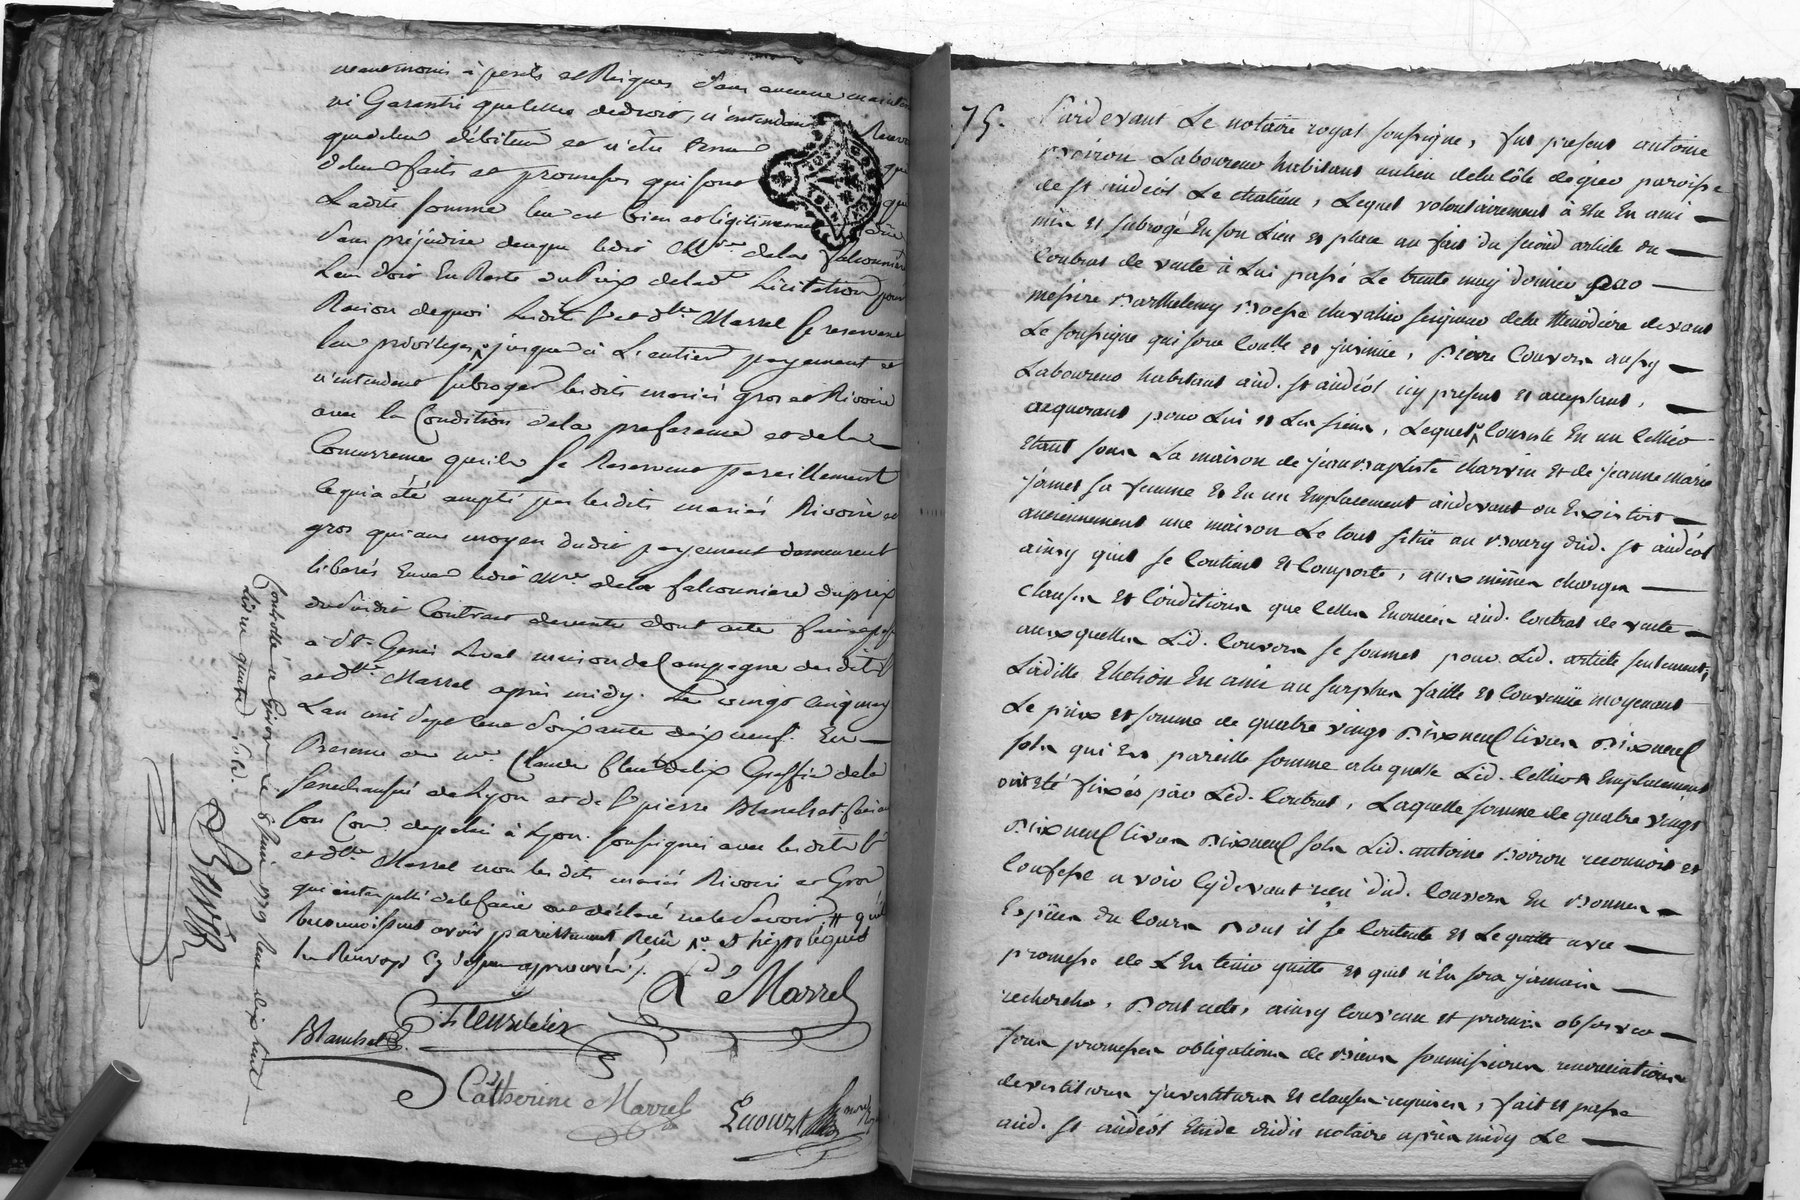 neanmoins à perils et Risques Sans aucune maintenue
ni Garantie quelle que dedroit, n'entendant Renvoi
que deleur débiteur et n'être tenu que
deleurs faits et promesses qui sont que
Ladite somme leur est bien et légitimement düe
Sans préjudice dece que ledit Mr. dela falconniere
leur doit En Reste du Prix delad. Licitation pour
Raison dequoi lesdits Sr. et dlle. Marrel se reservent
leurs privileges jusques à L'entier payement et
n'entendent subroger lesdits mariés gros et Rivoire
avec la Condition dela preference et dela
Concurrence qu'ils se Reservent pareillement
ce qui a été accepté par lesdits mariés Rivoire et
gros qui au moyen dudit payement demeurent
liberés Envers ledit Mre. dela falconniere du prix
dususdit Contrat devente dont acte fait et passé
a St. Genis Laval maison de Campagne desdits Sr.
et dlle. Marrel après midy. Le vingt cinq may
L'an mil sept cent Soixante dix neuf. En
Presence de Mr. Claude fleurdelix Greffier dela
Senechaussée de Lyon et de Sr. pierre Blanchet
à Lyon. soussignés avec lesdits Sr.
et dlle. Marrel non lesdits mariés Rivoire et Gros
qui interpellés delefaire ont déclaré ne le Savoir # qu'ils
reconnoissent avoir parcillement Reçu
les Renvoys Cy dessus approuvés /.
L. d Marrel
Fleurdelix
Blanchet
Catherine Marrel
Controllé à Givors Le 8 juin 1779 Reçu dix huit
75.
Pardevant Le notaire royal soussigne, fut present antoine
Boiron Laboureur habitant au lieu dela Côte de gier paroisse
de St andéol Le chateau, Lequel volontairement à Elu En ami
mis et subrogé En son Lieu et place au fait du second article du
Contrat de vente à Lui passé Le trente may dernier par
messire Barthelemy Boesse chevalier seigneur dela thenodiere devant
Le soussigne qui sera Contllé et jnsinué, pierre Couvera aussy
Laboureur habitant aud. St andéol icy present et acceptant,
acquerant pour Lui et Les siens, Lequel Consiste En un Cellier
Etant sous La maison de jean Baptiste charvin et de jeanne Marie
james sa femme Et En un Emplacement audevant ou Existoit
anciennement une maison Le tout situé au Bourg dud. St andéol
ainsy qu'il se Contient Et Comporte, aux mêmes charges
clauses Et Conditions que Celles Enoncées aud. Contrat de vente
auxquelles Led. Couvera se soumet pour Led. article seulement;
Ladite Election En ami au surplus faitte et Convenüe moyenant
Le prix et somme de quatre vingt Dixneuf Livres Dixneuf
sols qui Est pareille somme alaquelle Led. Cellier et Emplacement
ont Eté fixés par Led. Contrat, Laquelle somme de quatre vingt
Dixneuf livres Dixneuf sols Led. antoine Boiron reconnoit et
Confesse avoir Cydevant reçu dud. Couvera En Bonnes
Espèces du Cours Dont il se Contente Et Le quitte avec
promesse de L'En tenir quitte et quil n'En sera jamais
recherché, Dont acte, ainsy Convenu Et promis observer
sous promesses obligations de Biens soumissions renonciations
devestitures jnvestitures Et clauses requises, fait et passé
aud. St andéol Etude dudit notaire après midy Le